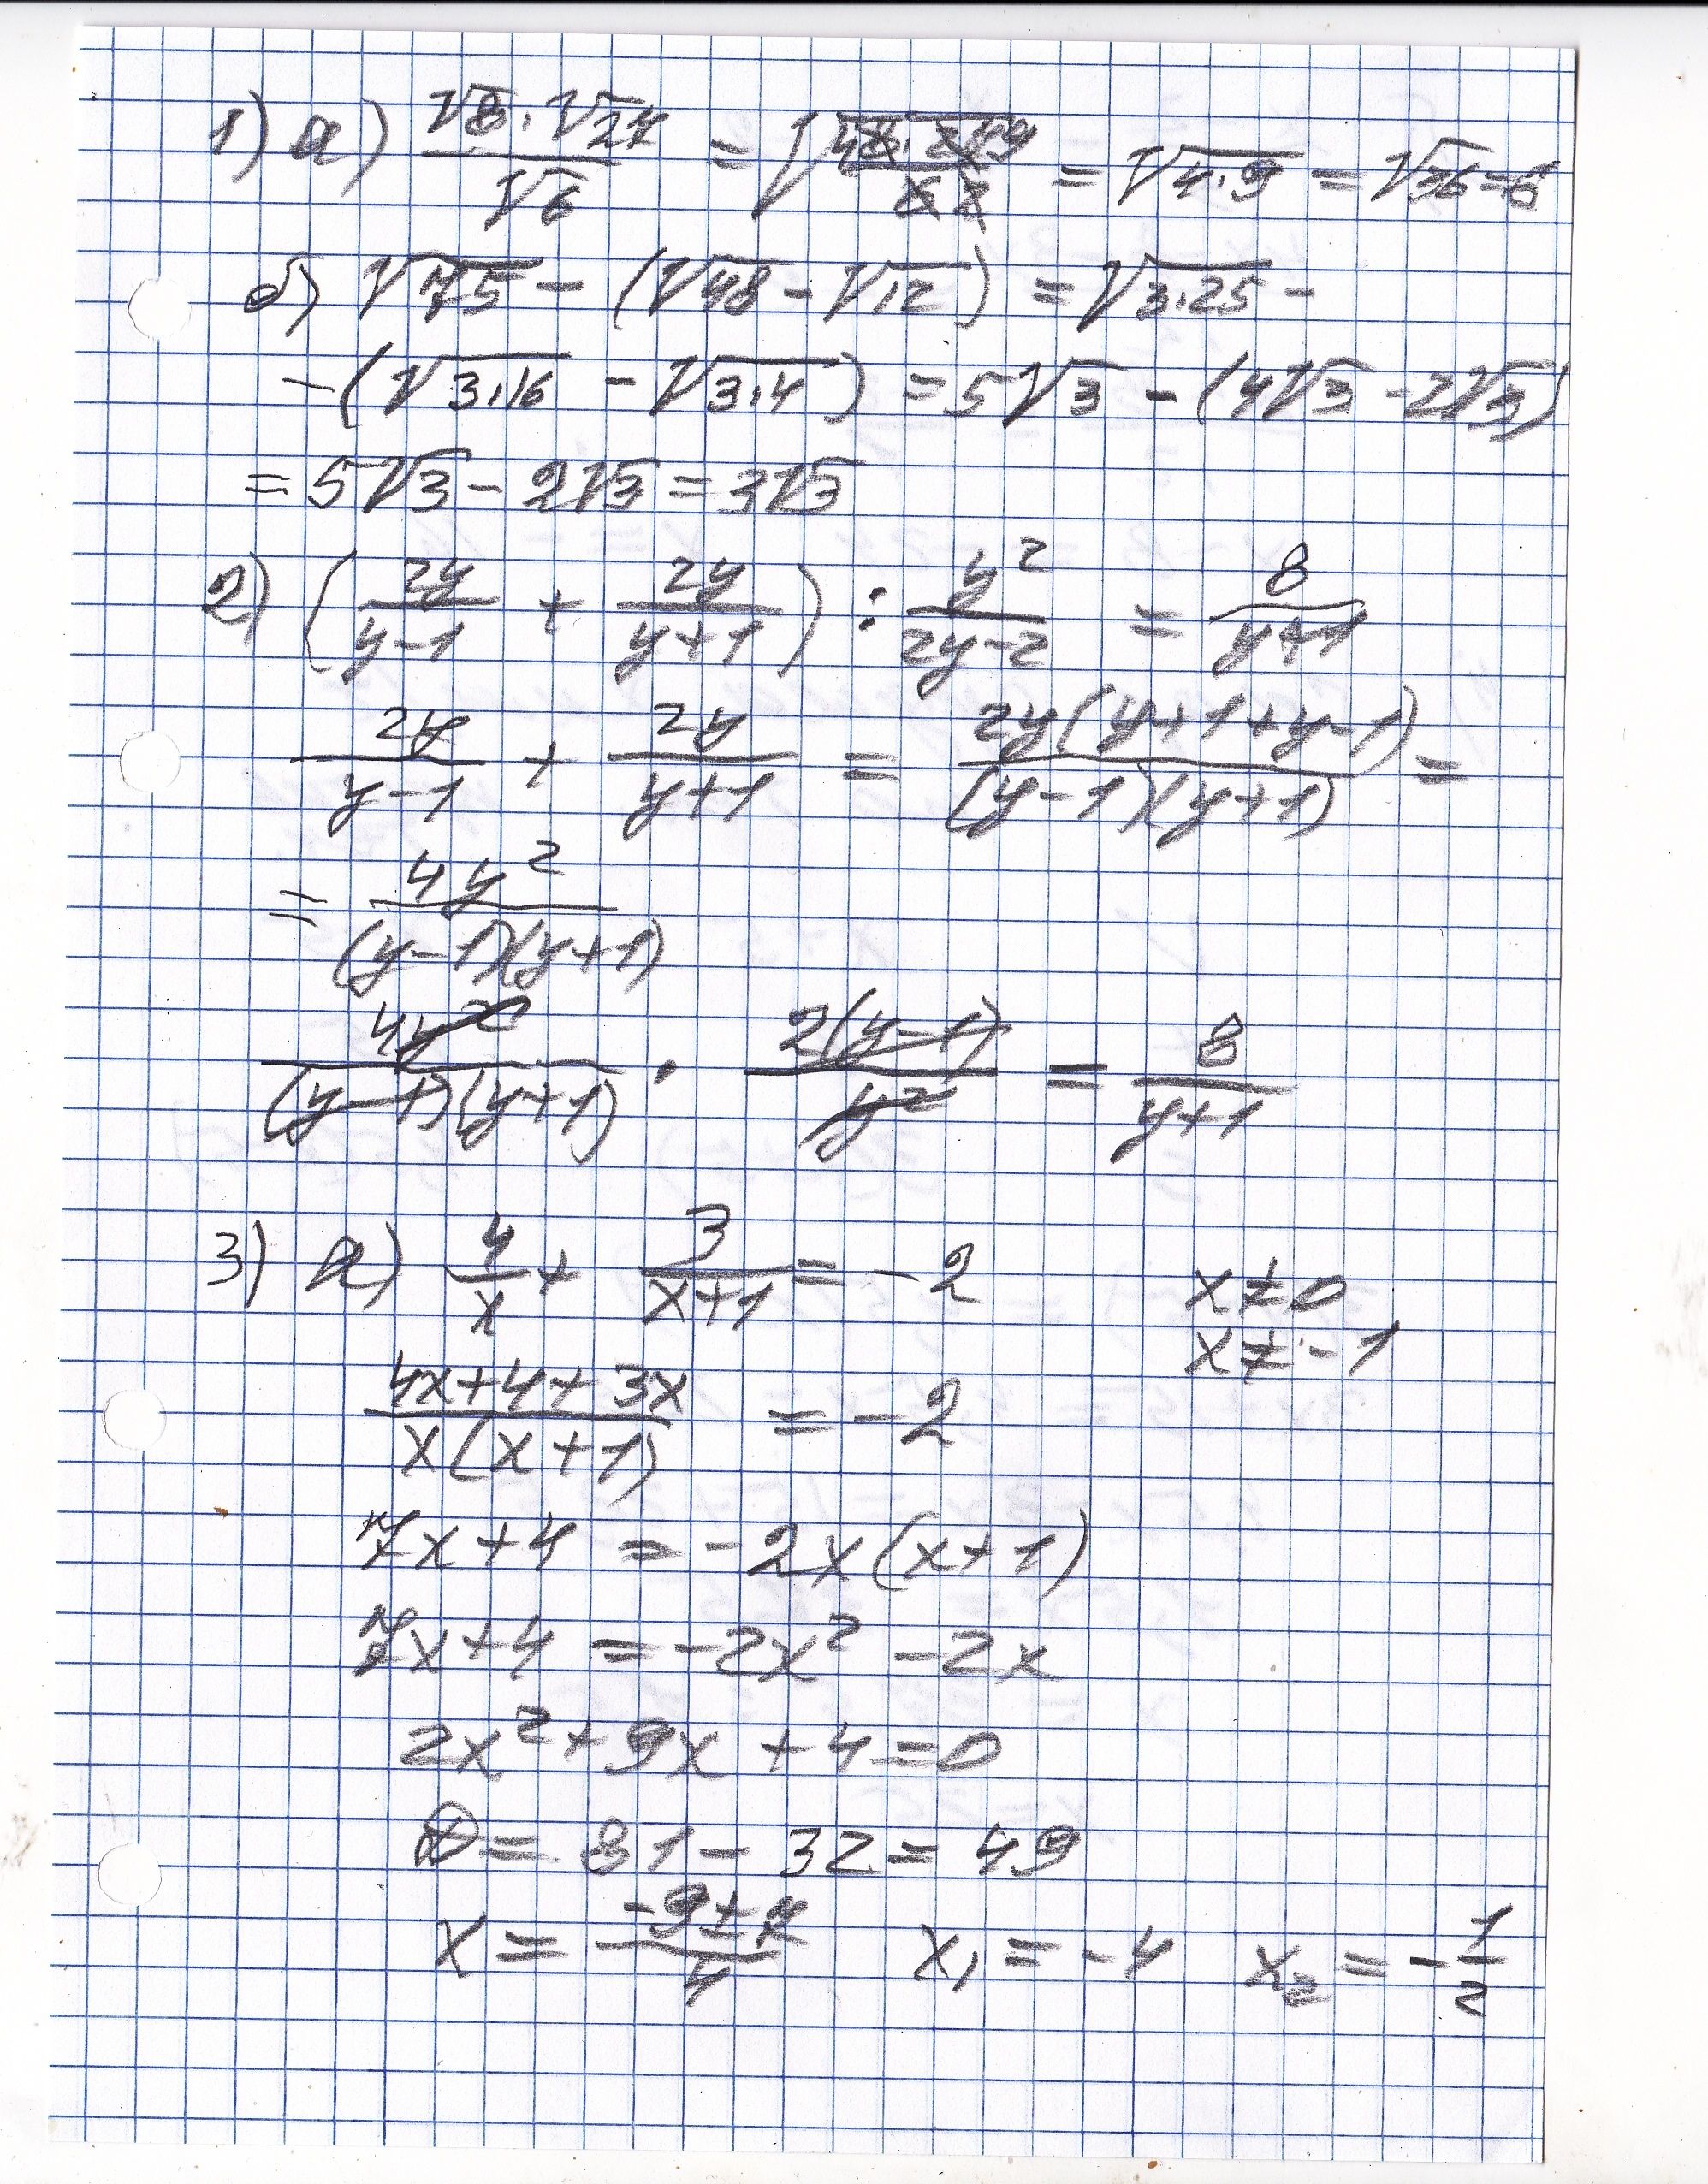 1) а) √8·√27 / √6 = √(48·279 / 62) = √4·9 = √36 = 6
б) √75 - (√48 - √12) = √3·25 -
- (√3·16 - √3·4) = 5√3 - (4√3 - 2√3)
= 5√3 - 2√3 = 3√3
2) (2y/(y-1) + 2y/(y+1)) : y²/(2y-2) = 8/(y+1)
2y/(y-1) + 2y/(y+1) = 2y(y+1+y-1)/((y-1)(y+1)) =
= 4y²/((y-1)(y+1))
4y²/((y-1)(y+1)) · 2(y-1)/y² = 8/(y+1)
3) а) 4/x + 3/(x+1) = -2 x ≠ 0
x ≠ -1
(4x+4+3x)/(x(x+1)) = -2
7x+4 = -2x(x+1)
7x+4 = -2x² - 2x
2x² + 9x + 4 = 0
D = 81 - 32 = 49
x = (-9±7)/4 x₁ = -4 x₂ = -1/2